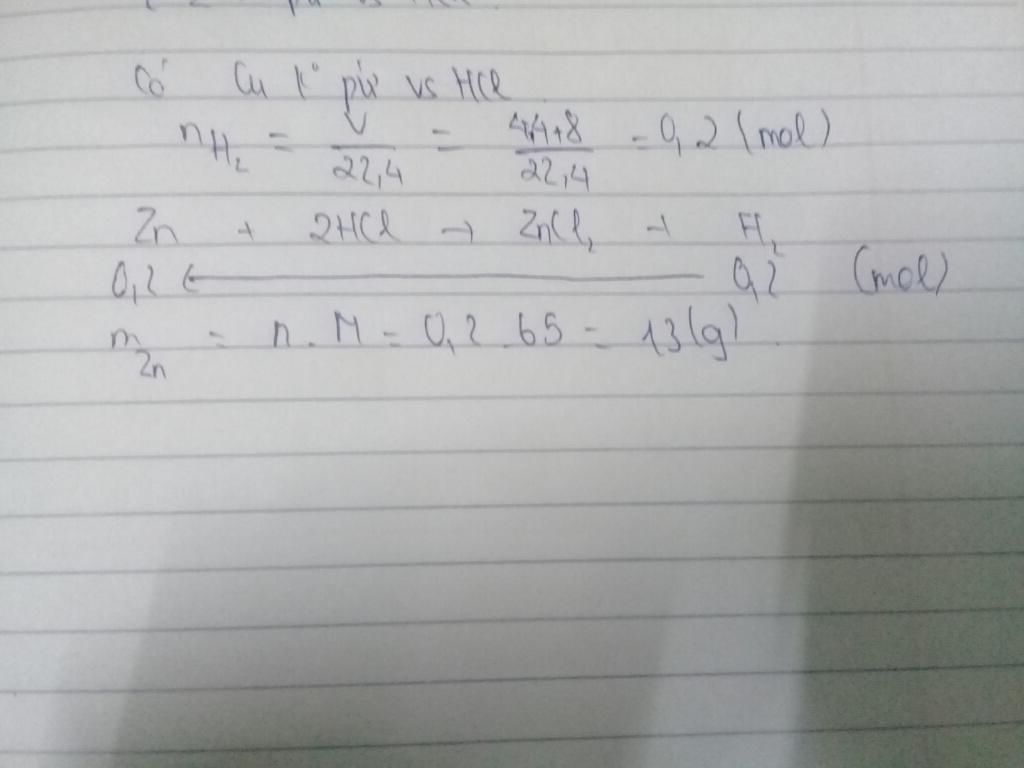 Có Cu k° pứ vs HCl
nH₂ = V/22,4 = 4,48/22,4 = 0,2 (mol)
Zn + 2HCl → ZnCl₂ + H₂
0,2 ← 0,2 (mol)
mZn = n . M = 0,2 . 65 = 13 (g)